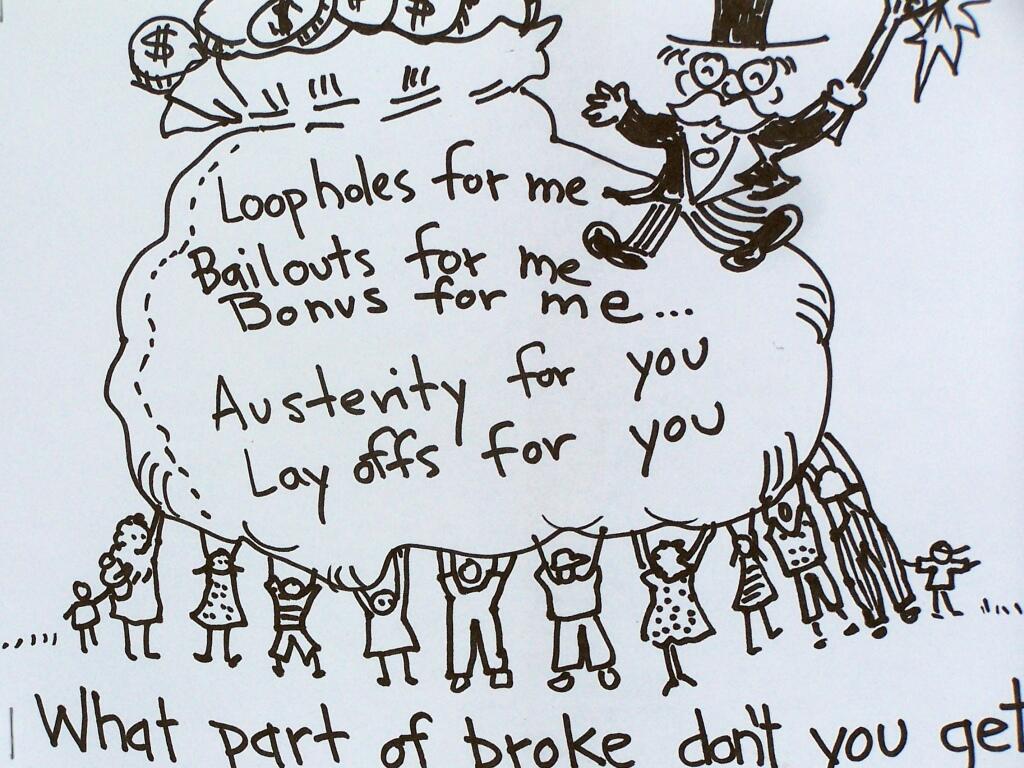 $ $ $
Loopholes for me
Bailouts for me
Bonus for me...
Austerity for you
Lay offs for you
What part of broke don't you get